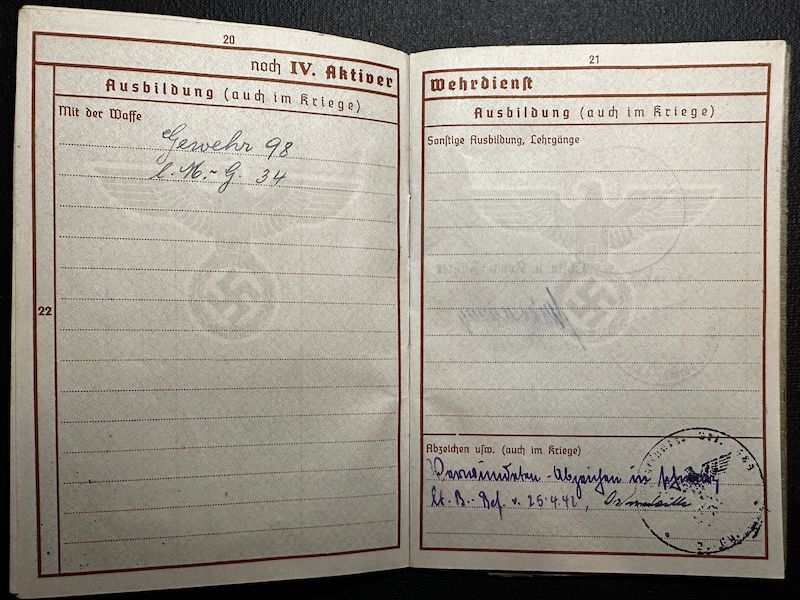 20
noch IV. Aktiver
Ausbildung (auch im Kriege)
Mit der Waffe
Gewehr 98
l. M.-G. 34
22
21
Wehrdienst
Ausbildung (auch im Kriege)
Sonstige Ausbildung, Lehrgänge
Abzeichen usw. (auch im Kriege)
Verwundeten-Abzeichen in schwarz
lt. B.-Bef. v. 25.4.42,